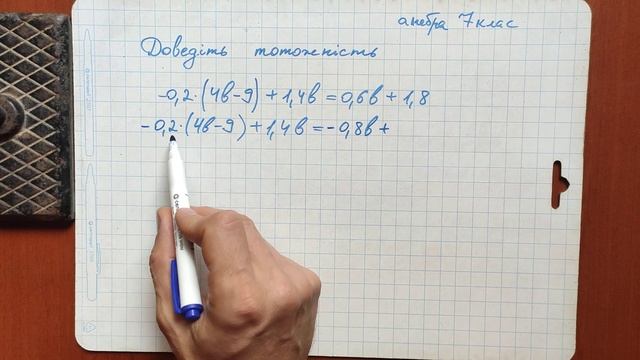 алгебра 7 клас
Доведіть тотожність
-0,2·(4в-9)+1,4в=0,6в+1,8
-0,2·(4в-9)+1,4в=-0,8в+